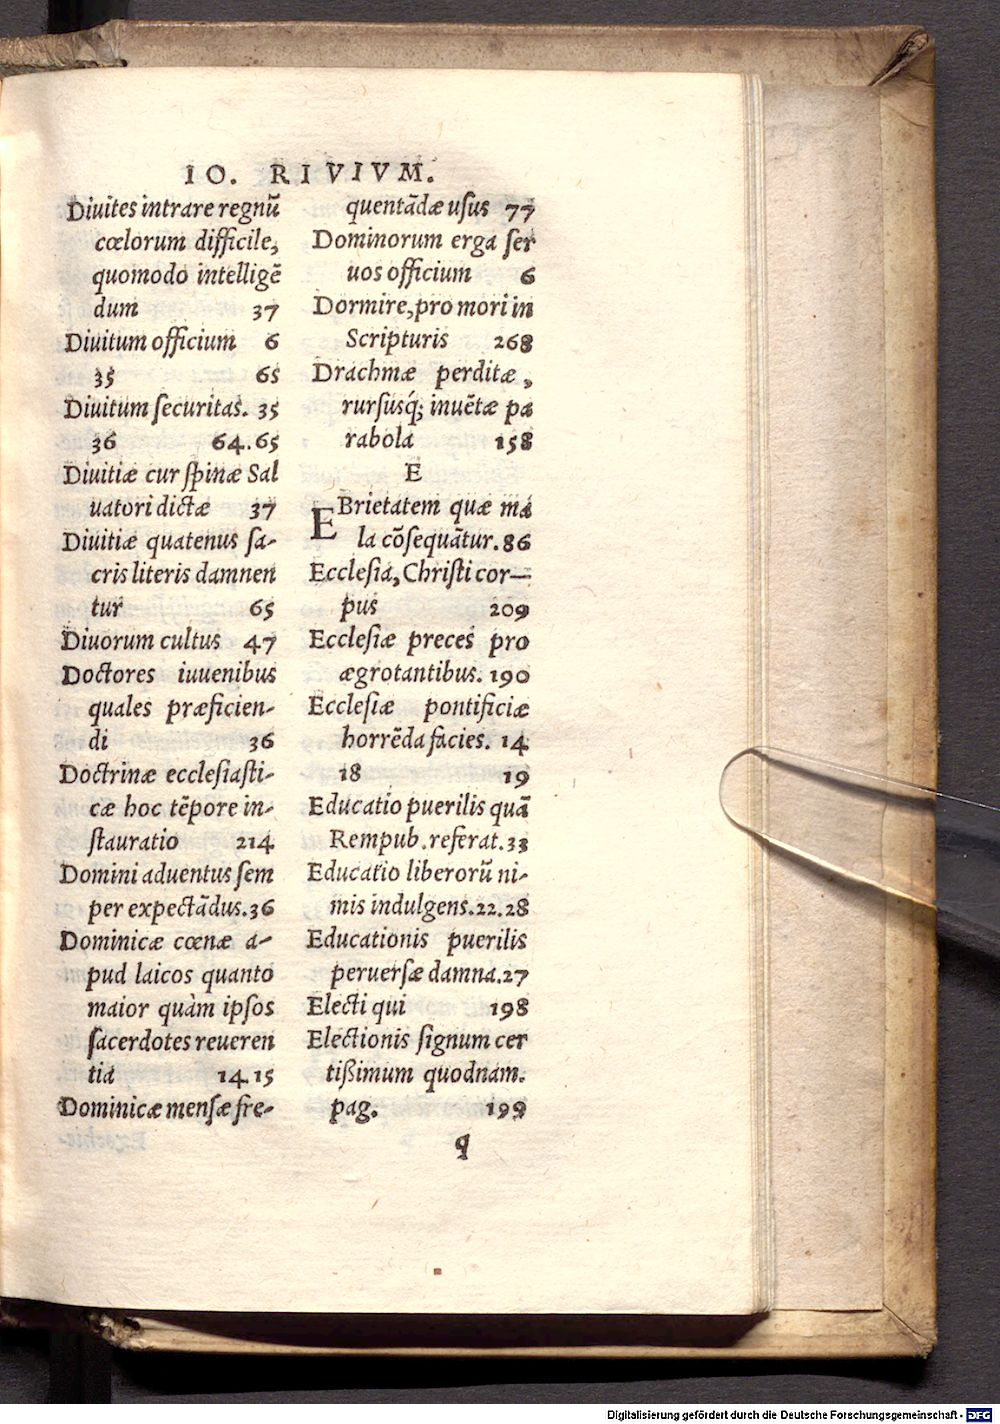 IO. RIVIVM.
Diuites intrare regnū
cœlorum difficile,
quomodo intelligē
dum 37
Diuitum officium 6
35 65
Diuitum ſecuritas. 35
36 64.65
Diuitiæ cur ſpinæ Sal
uatori dictæ 37
Diuitiæ quatenus ſa-
cris literis damnen
tur 65
Diuorum cultus 47
Doctores iuuenibus
quales præficien-
di 36
Doctrinæ ecclesiaſti-
cæ hoc tēpore in-
ſtauratio 214
Domini aduentus ſem
per expectādus. 36
Dominicæ cœnæ a-
pud laicos quanto
maior quàm ipſos
ſacerdotes reueren
tia 14.15
Dominicæ menſæ fre-
quentādæ uſus 77
Dominorum erga ſer
uos officium 6
Dormire, pro mori in
Scripturis 268
Drachmæ perditæ,
rurſusq́; inuētæ pa
rabola 158
E
EBrietatem quæ ma
la cōſequātur. 86
Eccleſia, Chriſti cor—
pus 209
Eccleſiæ preces pro
ægrotantibus. 190
Eccleſiæ pontificiæ
horrēda facies. 14
18 19
Educatio puerilis quā
Rempub. referat. 33
Educatio liberorū ni-
mis indulgens. 22.28
Educationis puerilis
peruerſæ damna. 27
Electi qui 198
Electionis ſignum cer
tißimum quodnam.
pag. 199
q
Digitalisierung gefördert durch die Deutsche Forschungsgemeinschaft - DFG